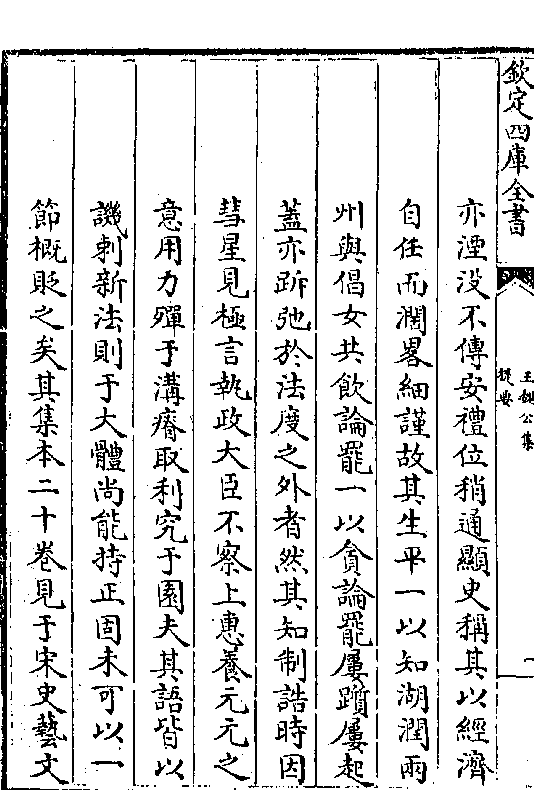 欽定四庫全書
王魏公集
提要
亦湮没不傳安禮位稍通顯史稱其以經濟
自任而濶畧細謹故其生平一以知湖潤兩
州與倡女共飲論罷一以貪論罷屢躓屢起
蓋亦跅弛於法度之外者然其知制誥時因
彗星見極言執政大臣不察上惠養元元之
意用力殫于溝瘠取利究于園夫其語皆以
譏刺新法則于大體尚能持正固未可以一
節概貶之矣其集本二十卷見于宋史藝文